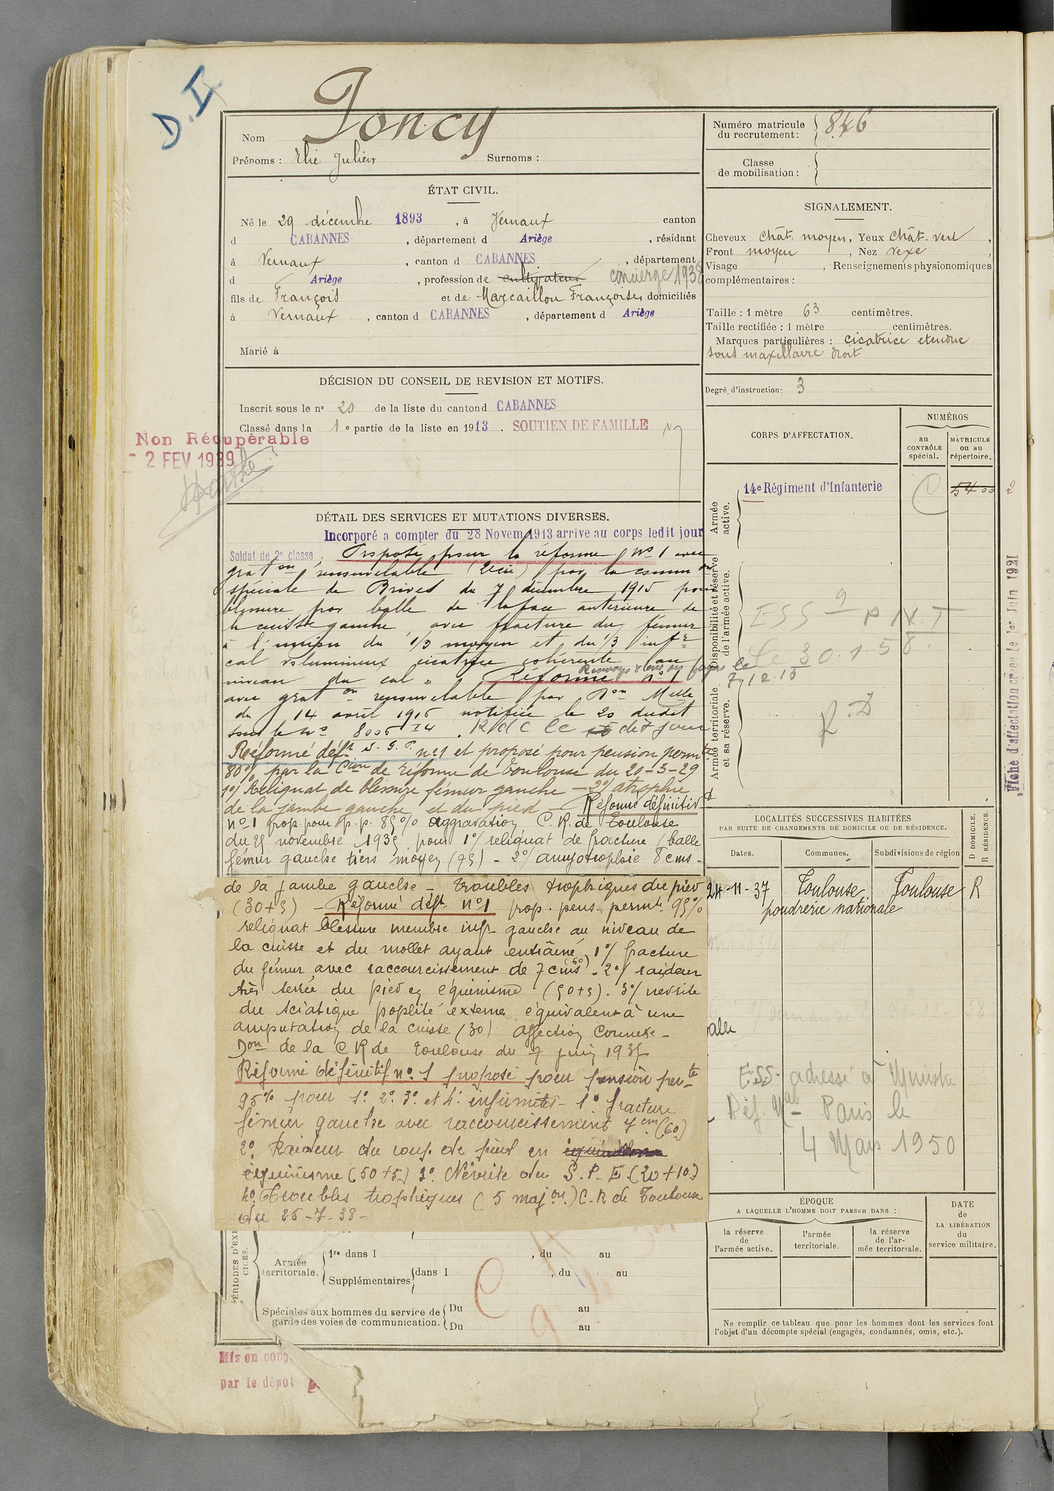 D.I
Nom Joncy
Prénoms : Elie Julien Surnoms :
ÉTAT CIVIL.
Né le 29 décembre 1893, à Vernaux canton
d CABANNES, département d Ariège, résidant
à Vernaux, canton d CABANNES, département
d Ariège, profession de cultivateur concierge 1938
fils de François et de Marcaillou Françoise domiciliés
à Vernaux, canton d CABANNES, département d Ariège
Marié à
DÉCISION DU CONSEIL DE REVISION ET MOTIFS.
Inscrit sous le nº 20 de la liste du canton d CABANNES
Classé dans la 1e partie de la liste en 1913. SOUTIEN DE FAMILLE
Non Récupérable
- 2 FEV 1939
DÉTAIL DES SERVICES ET MUTATIONS DIVERSES.
Incorporé a compter du 28 Novem. 1913 arrive au corps ledit jour
Soldat de 2e classe. Proposé pour la réforme Nº 1 avec
graton renouvelable par la common
spéciale de Brives du 7 décembre 1915 pour
blessure par balle de la face antérieure de
la cuisse gauche avec fracture du fémur
à l'union du 1/3 moyen et du 1/3 infr
cal volumineux cicatrice cohérente au
niveau du cal " Renvoyé dans ses foyers le
7/12.15
Réformé nº 1
avec graton renouvelable par Don Mlle
du 14 avril 1916 notifiée le 20 dudit
sous le Nº 8006 I4. R d C le dit jour
Réformé déft nº 1 et proposé pour pension permte
80% par la Cion de réforme de Toulouse du 20-3-29
1º/ Reliquat de blessure fémur gauche - 2º/ atrophie
de la jambe gauche et du pied - Réformé définitif
nº1 prop. pour p.p. 85% aggravation C.R. de Toulouse
du 25 novembre 1935 pour 1º/ reliquat de fracture balle
fémur gauche tiers moyen - 2º/ amyotrophie 8 cms -
de la jambe gauche - troubles trophiques du pied
(30+5) - Réformé déft nº1 prop. pens. permte 95%
reliquat blessure membre infr gauche au niveau de
la cuisse et du mollet ayant entraîné 1º/ fracture
du fémur avec raccourcissement de 7 cms (60) - 2º/ raideur
très serrée du pied en équinisme (50+5). 3º/ névrite
du sciatique poplité externe équivalent à une
amputation de la cuisse (30) affection connexe -
Don de la C R de Toulouse du 7 juin 1937
Réformé définitif nº 1 proposé pour pension perte
95% pour 1º 2º 3º et 4º infirmités - 1º fracture
fémur gauche avec raccourcissement 7 cm (60)
2º Raideur du cou de pied en
équinisme (50+5) 3º Névrite du S.P.E (20+10)
4º Troubles trophiques (5 majon.) C.R de Toulouse
du 26-7-38-
PÉRIODES D'EXERCICES.
Armée territoriale.
1re dans l , du au
Supplémentaires dans l , du au
Spéciales aux hommes du service de garde des voies de communication.
Du au
Du au
C 9
Mis en
par le dépôt
Numéro matricule du recrutement : 846
Classe de mobilisation :
SIGNALEMENT.
Cheveux chât. moyen, Yeux chât. vert,
Front moyen, Nez vexe,
Visage , Renseignements physionomiques
complémentaires :
Taille : 1 mètre 63 centimètres.
Taille rectifiée : 1 mètre centimètres.
Marques particulières : cicatrice étendue
sous maxillaire droit
Degré d'instruction : 3
CORPS D'AFFECTATION.
NUMÉROS
au CONTRÔLE spécial.
MATRICULE ou au répertoire.
Armée active.
14e Régiment d'Infanterie
C
5400
Disponibilité et réserve de l'armée active.
ESS
Le 30.1.58.
Armée territoriale et sa réserve.
R.D
Fiche d'affectation créée le 1er Juin 1921
LOCALITÉS SUCCESSIVES HABITÉES
PAR SUITE DE CHANGEMENTS DE DOMICILE OU DE RÉSIDENCE.
Dates. Communes. Subdivisions de région
D DOMICILE. R RÉSIDENCE.
24-11-37 Toulouse Toulouse R
poudrerie nationale
ESS. adressé à Ministre
Déf. Nale Paris le
4 Mars 1950
ÉPOQUE
A LAQUELLE L'HOMME DOIT PASSER DANS :
la réserve de l'armée active.
l'armée territoriale.
la réserve de l'armée territoriale.
DATE de LA LIBÉRATION du service militaire.
Ne remplir ce tableau que pour les hommes dont les services font
l'objet d'un décompte spécial (engagés, condamnés, omis, etc.).